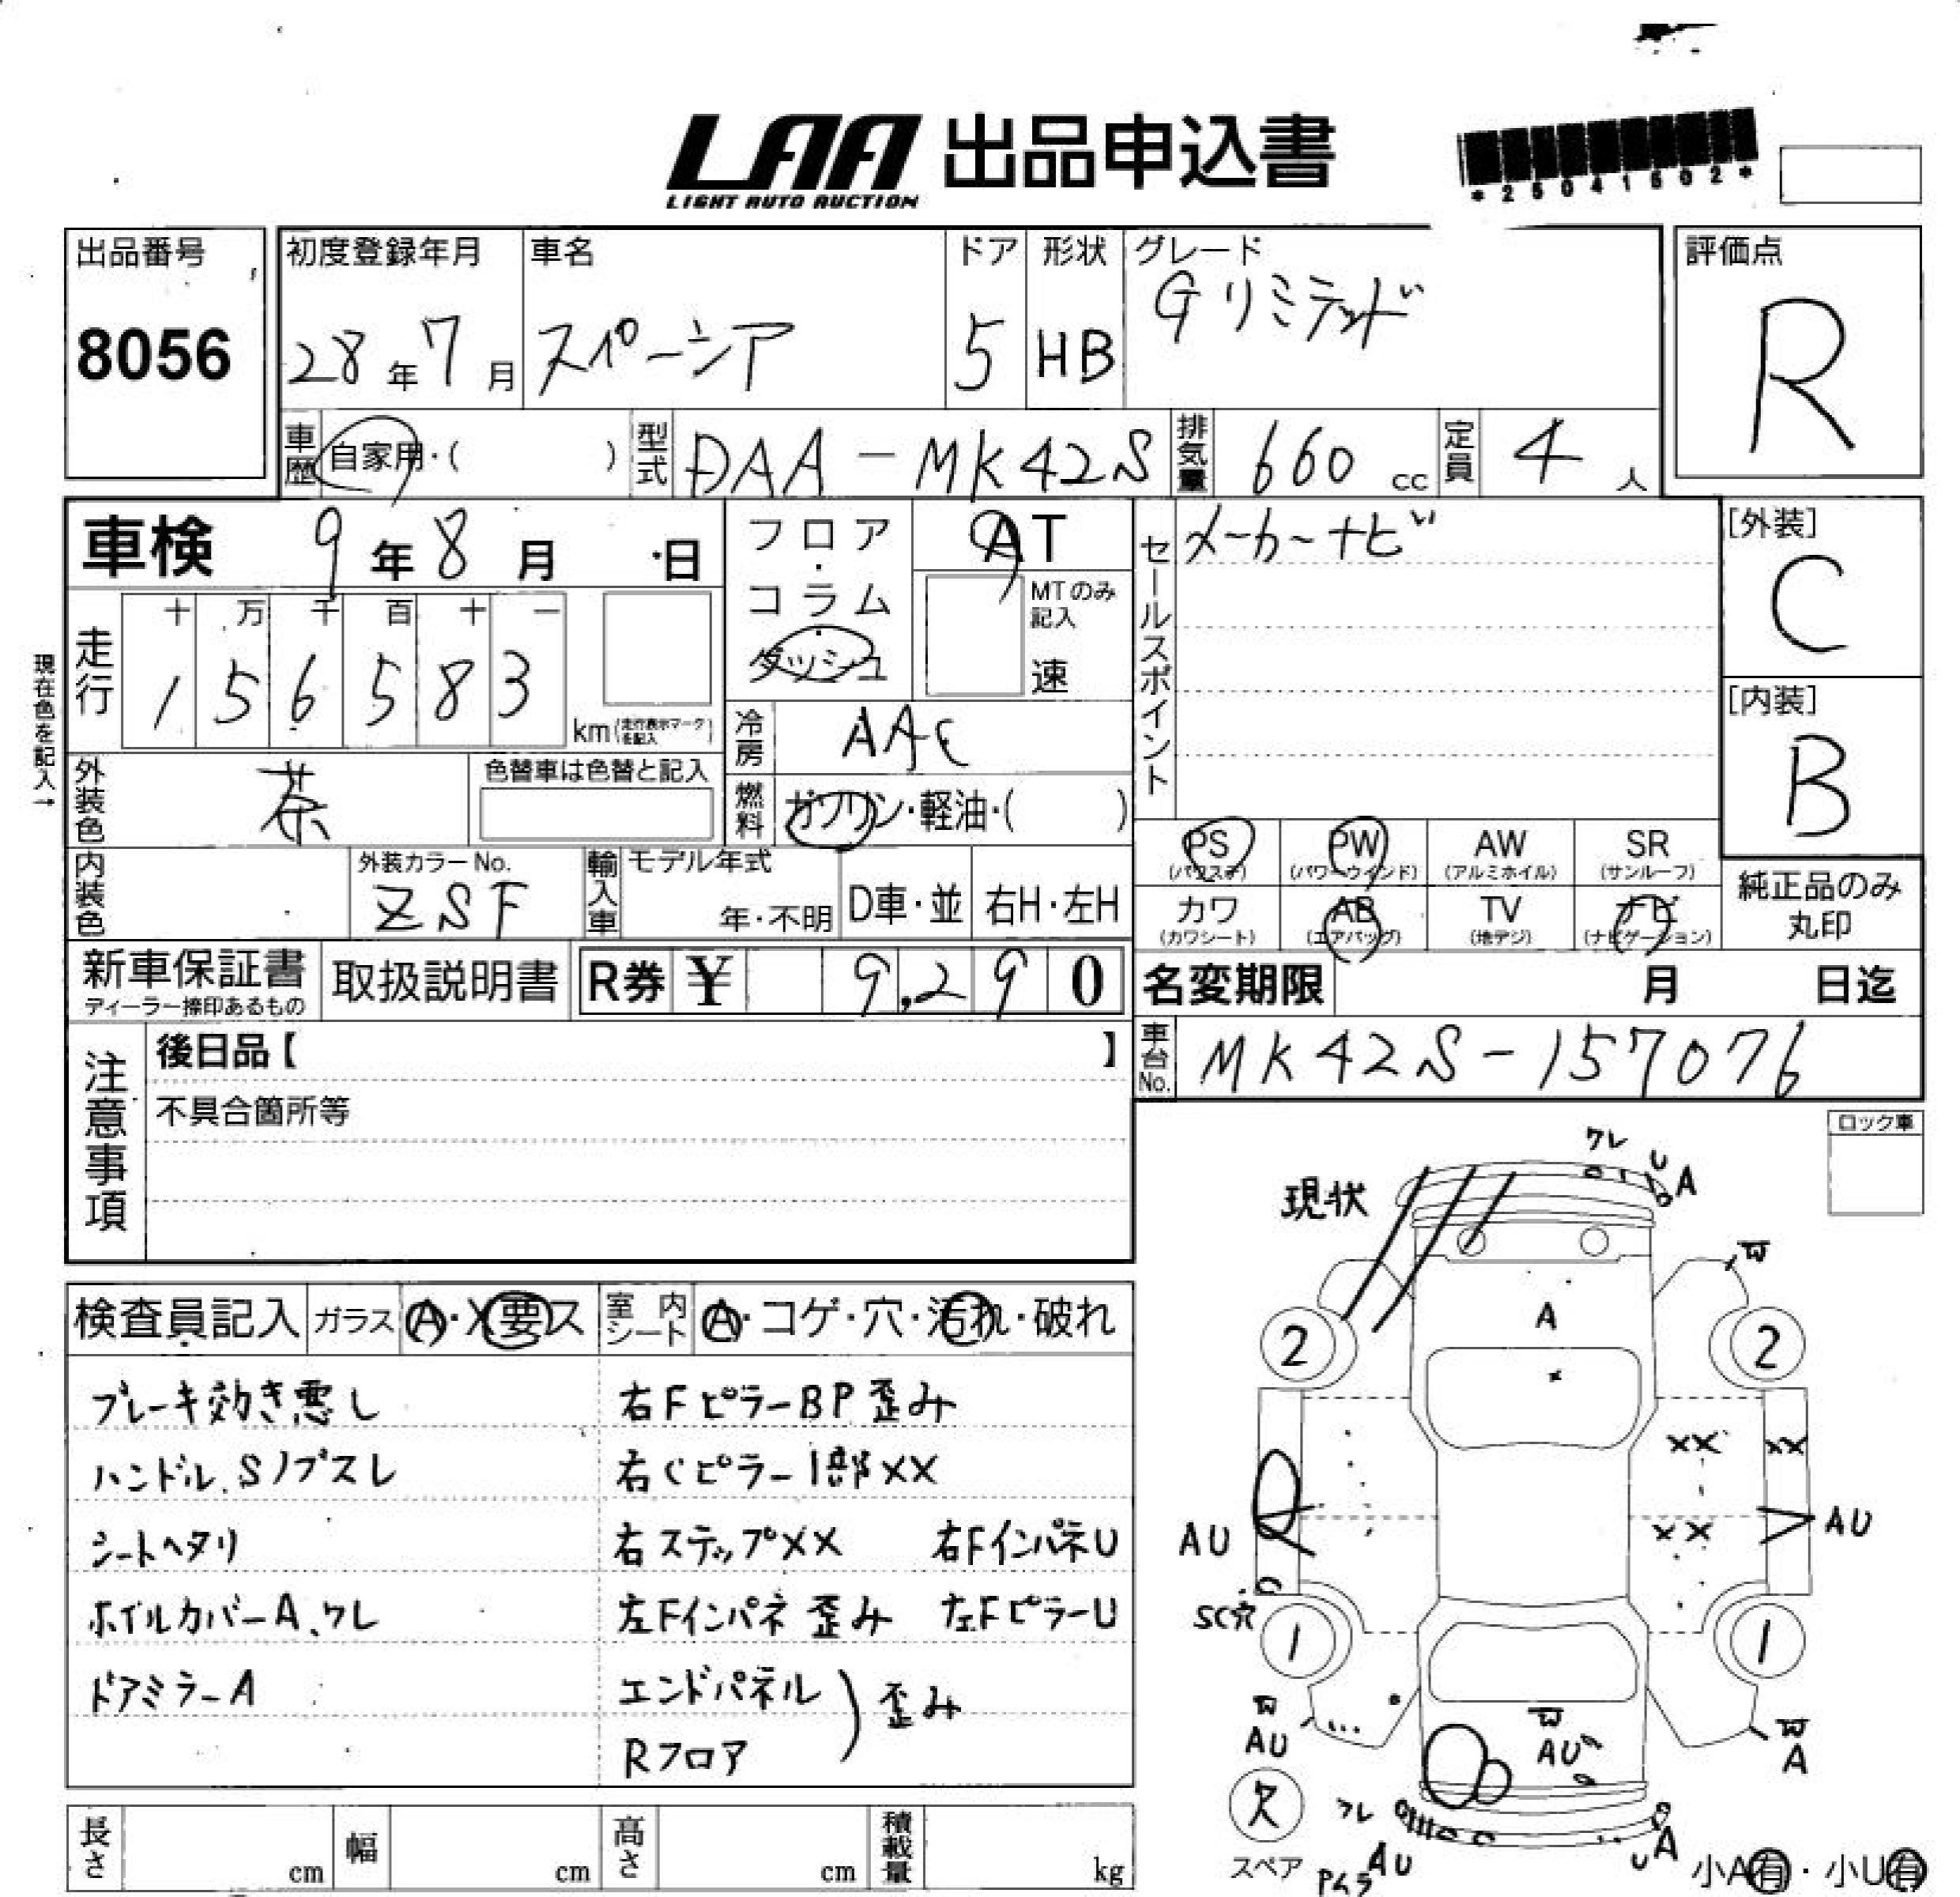 LAA 出品申込書
LIGHT AUTO AUCTION
*25041502*
出品番号
8056
初度登録年月
28年7月
車名
スペーシア
ドア
5
形状
HB
グレード
Gリミテッド
評価点
R
車歴
自家用・( )
型式
DAA-MK42S
排気量
660 cc
定員
4 人
車検 9年8月 日
フロア・コラム・ダッシュ
AT
MTのみ記入
速
セールスポイント
メーカーナビ
[外装]
C
[内装]
B
現在色を記入→
走行
十 万 千 百 十 一
1 5 6 5 8 3
km(走行表示マークを記入)
冷房
AAC
外装色
茶
色替車は色替と記入
燃料
ガソリン・軽油・( )
PS (パワステ)
PW (パワーウインド)
AW (アルミホイル)
SR (サンルーフ)
カワ (カワシート)
AB (エアバッグ)
TV (地デジ)
ナビ (ナビゲーション)
純正品のみ丸印
内装色
外装カラーNo.
ZSF
輸入車
モデル年式
年・不明
D車・並
右H・左H
新車保証書
ディーラー捺印あるもの
取扱説明書
R券 ¥ 9,290
名変期限 月 日迄
車台No.
MK42S-157076
注意事項
後日品【 】
不具合箇所等
ロック車
現状
ワレ
U
A
W
A
2
2
XX
XX
XX
AU
AU
SC穴
1
1
W
AU
W
AU
W
A
欠
スペア
ワレ
AU
Pムラ
UA
小A有・小U有
検査員記入
ガラス A・X要ス
室内シート A・コゲ・穴・汚れ・破れ
ブレーキ効き悪し
右FピラーBP歪み
ハンドル.Sノブスレ
右Cピラー1部XX
シートヘタリ
右ステップXX 右FインパネU
ホイルカバーA、ワレ
左Fインパネ歪み 左FピラーU
ドアミラーA
エンドパネル
Rフロア
)歪み
長さ cm
幅 cm
高さ cm
積載量 kg